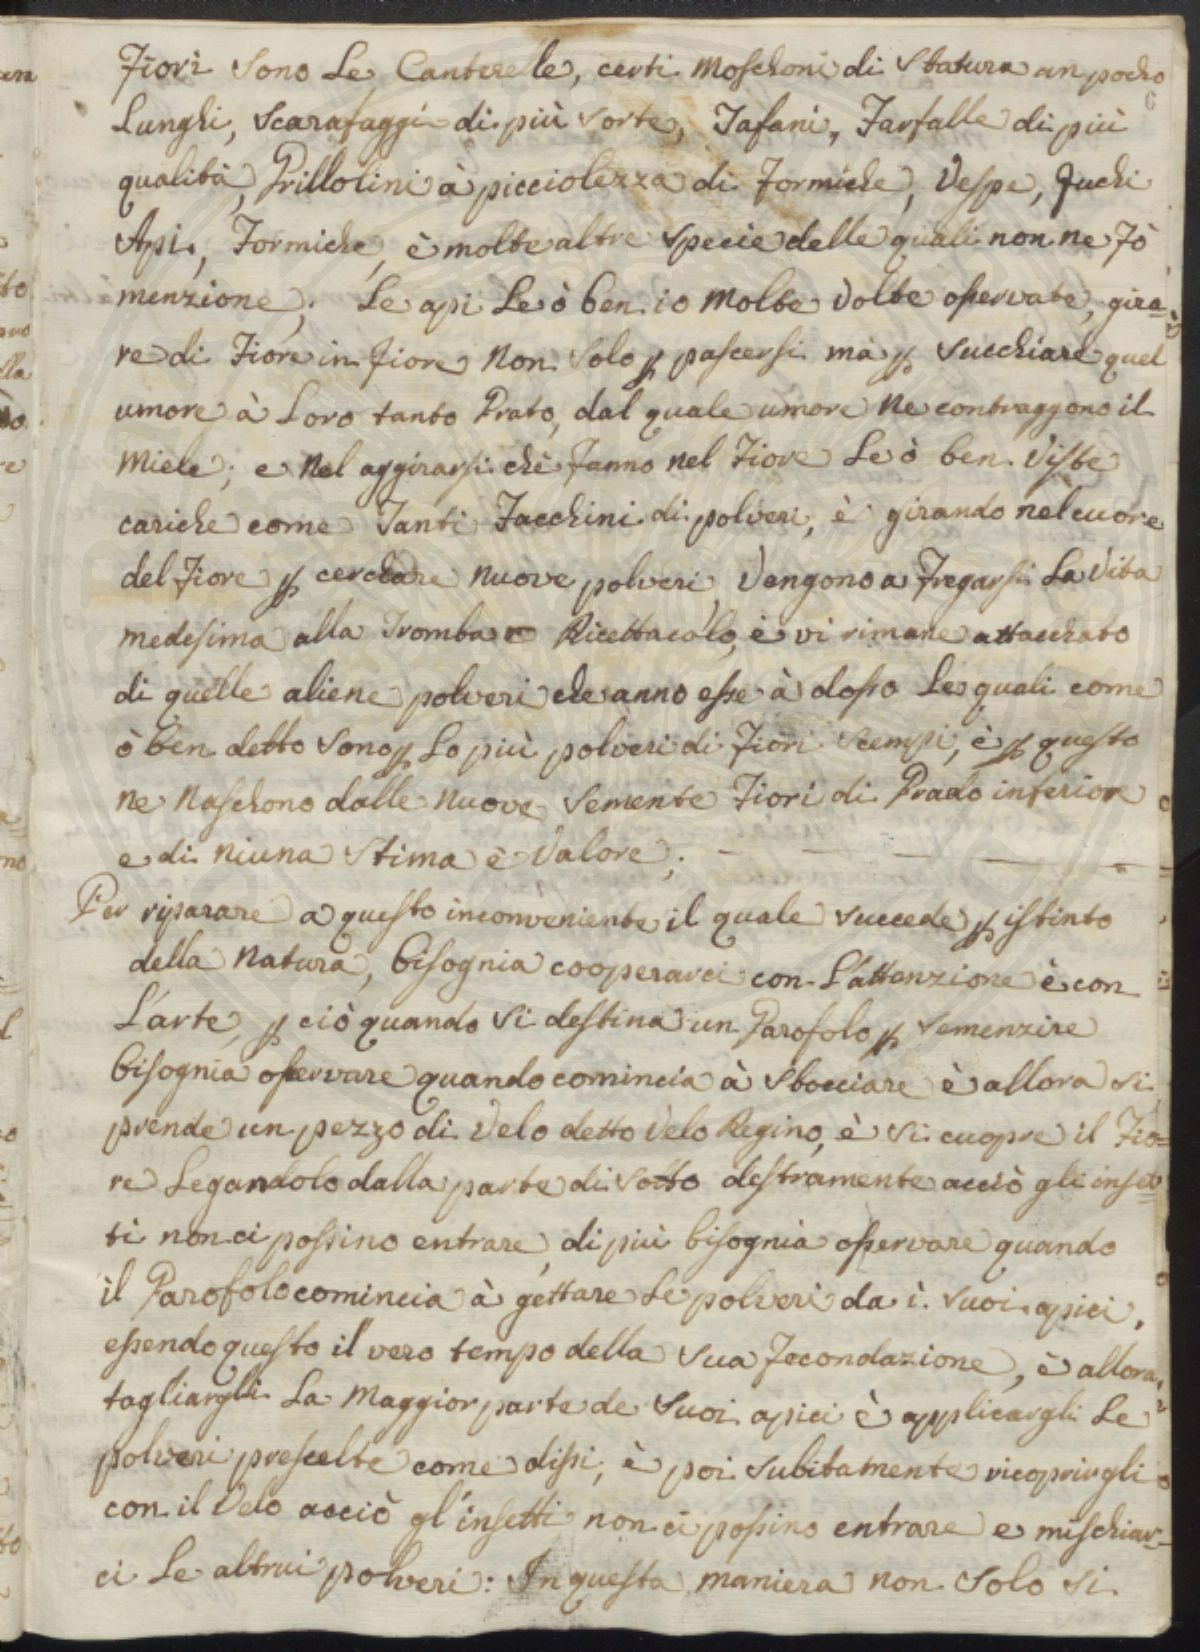 Fiori sono Le Canterelle, certi Moschoni di Statura un pocho
6
Lunghi, Scarafaggi di più sorte, Tafani, Farfalle di più
qualità, Grillolini à picciolezza di Formiche, Vespe, Fuchi
Api, Formiche, è molte altre specie delle quali non ne Fò
menzione; Le api Le ò ben io molte volte oservate, gira=
re di Fiore in fiore non solo p pascersi mà p succhiare quel
umore à Loro tanto Grato, dal quale umore ne contraggono il
Miele; e nel aggirarsi chè fanno nel Fiore Le ò ben Viste
cariche come Tanti Facchini di polveri, è girando nel cuore
del Fiore p cerchare nuove polveri, Vengono a Fregarsi La Vita
medesima alla Tromba o Ricettacolo, è vi rimane attacchato
di quelle aliene polveri che anno esse à dosso Le quali come
ò ben detto sono p Lo più polveri di Fiori Scempi, è p questo
ne naschono dalle nuove semente Fiori di Grado inferiore
e di niuna stima è Valore;
Per riparare a questo inconveniente il quale succede p istinto
della Natura, bisognia cooperarci con L'attenzione è con
L'arte, p ciò quando si destina un Garofolo p semenzire
bisognia oservare quando comincia à sbocciare è allora si
prende un pezzo di Velo detto Velo Regino, è si cuopre il Fio=
re Legandolo dalla parte di sotto destramente acciò gli inset=
ti non ci possino entrare, di più bisognia osservare quando
il Garofolo comincia à gettare Le polveri da i suoi apici,
essendo questo il vero tempo della sua Fecondazione, è allora
tagliargli La Maggior parte de suoi apici è applicargli Le
polveri prescelte come dissi, è poi subitamente ricoprirgli
con il Velo acciò gl'insetti non ci possino entrare e mischiar=
ci Le altrui polveri: In questa maniera non solo si